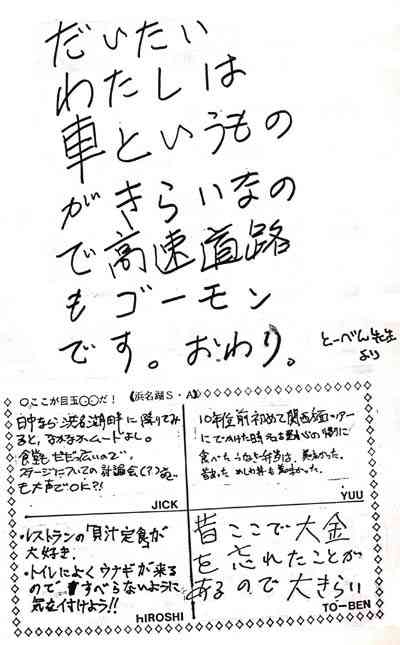 だいたい
わたしは
車というもの
がきらいなの
で高速道路
もゴーモン
です。おわり。
とーべん先生
より
○ここが目玉○○だ！ 《浜名湖S・A》
日中なら浜名湖畔に降りてみ
ると、なかなかムードよし。
食堂もだだっ広いので、
ステージについての討論会(?)
も大声でOK?!
JICK
10年位前初めて関西ツアー
にでかけた時
食べたうなぎ弁当は、美味かった。
YUU
・レストランの「貝汁定食」が
大好き.
・トイレによくウナギが来る
ので、すべらないように
気を付けよう!!
hIROSHI
昔ここで大金
を忘れたことが
あるので大きらい
TO-BEN